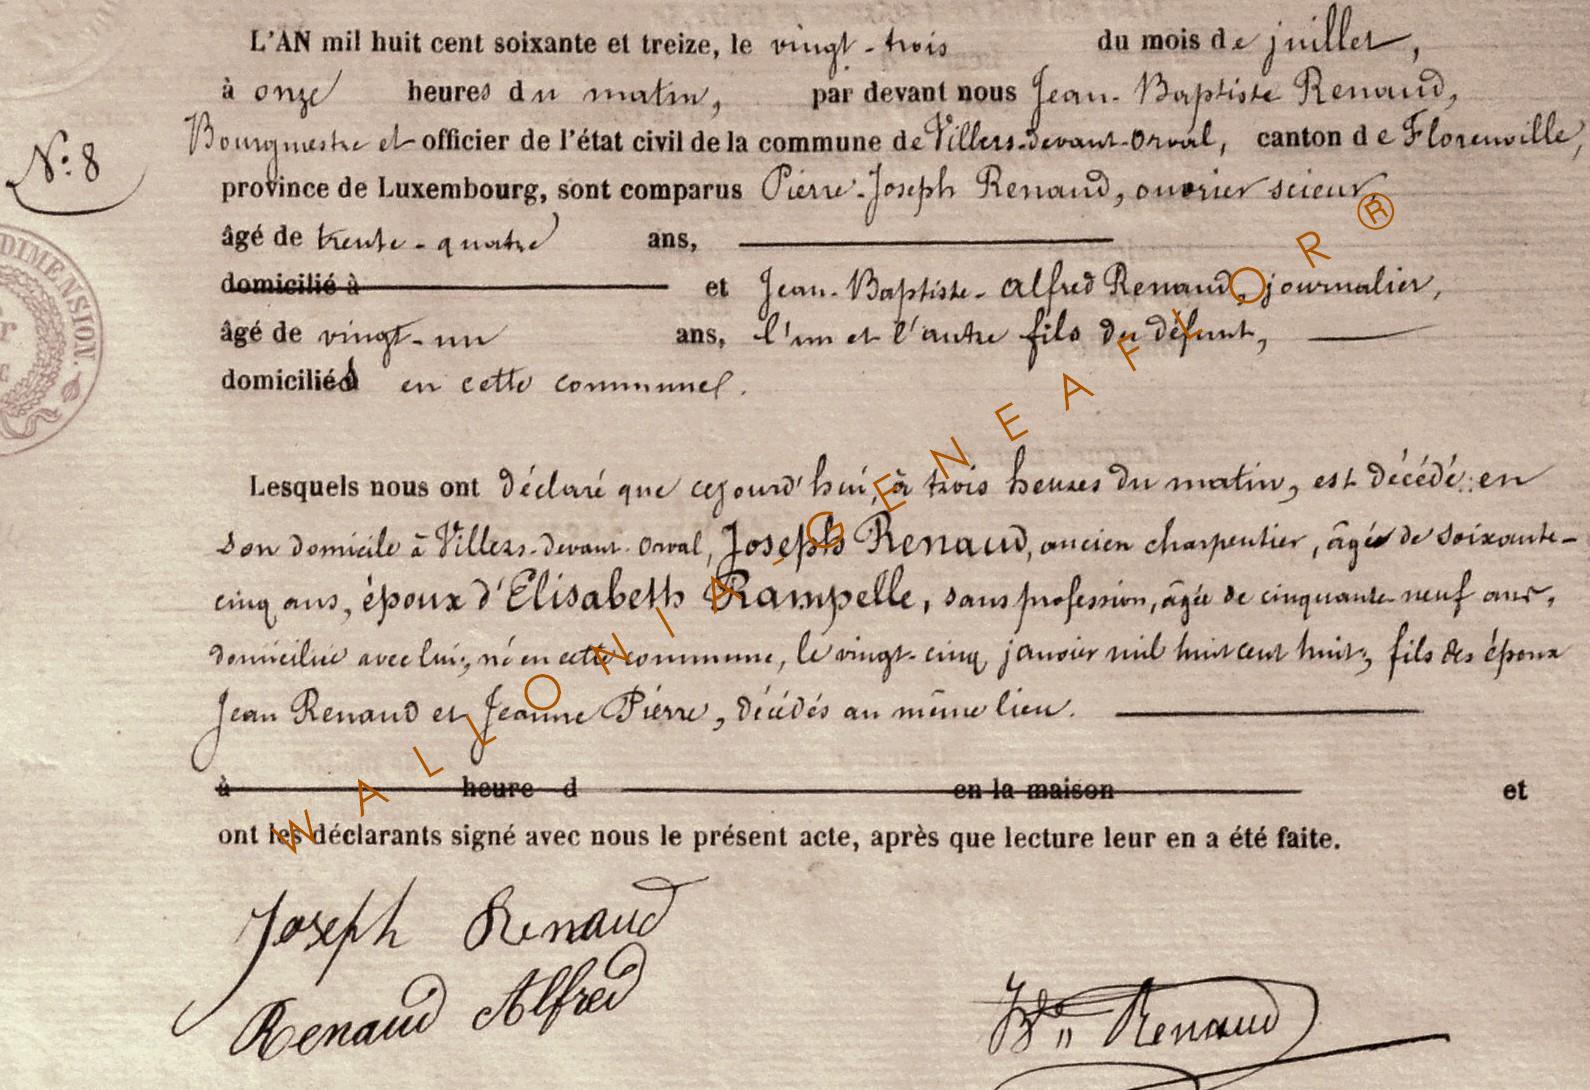 L'AN mil huit cent soixante et treize, le vingt-trois du mois de juillet,
à onze heures du matin, par devant nous Jean-Baptiste Renaud,
Bourgmestre et officier de l'état civil de la commune de Villers-devant-Orval, canton de Florenville,
N° 8
province de Luxembourg, sont comparus Pierre-Joseph Renaud, ouvrier scieur,
âgé de trente-quatre ans,
domicilié à et Jean-Baptiste-Alfred Renaud, journalier,
âgé de vingt-un ans, l'un et l'autre fils du défunt,
domiciliés en cette commune.
DIMENSION.
Lesquels nous ont déclaré que cejourd'hui, à trois heures du matin, est décédé en
son domicile à Villers-devant-Orval, Joseph Renaud, ancien charpentier, âgé de soixante-
cinq ans, époux d'Elisabeth Rampelle, sans profession, âgée de cinquante-neuf ans,
domiciliée avec lui; né en cette commune, le vingt-cinq janvier mil huit cent huit, fils des époux
Jean Renaud et Jeanne Pierre, décédés au même lieu.
à heure d en la maison et
ont les déclarants signé avec nous le présent acte, après que lecture leur en a été faite.
Joseph Renaud
Renaud Alfred
Renaud
WALLONIA-GENEAFLOR®